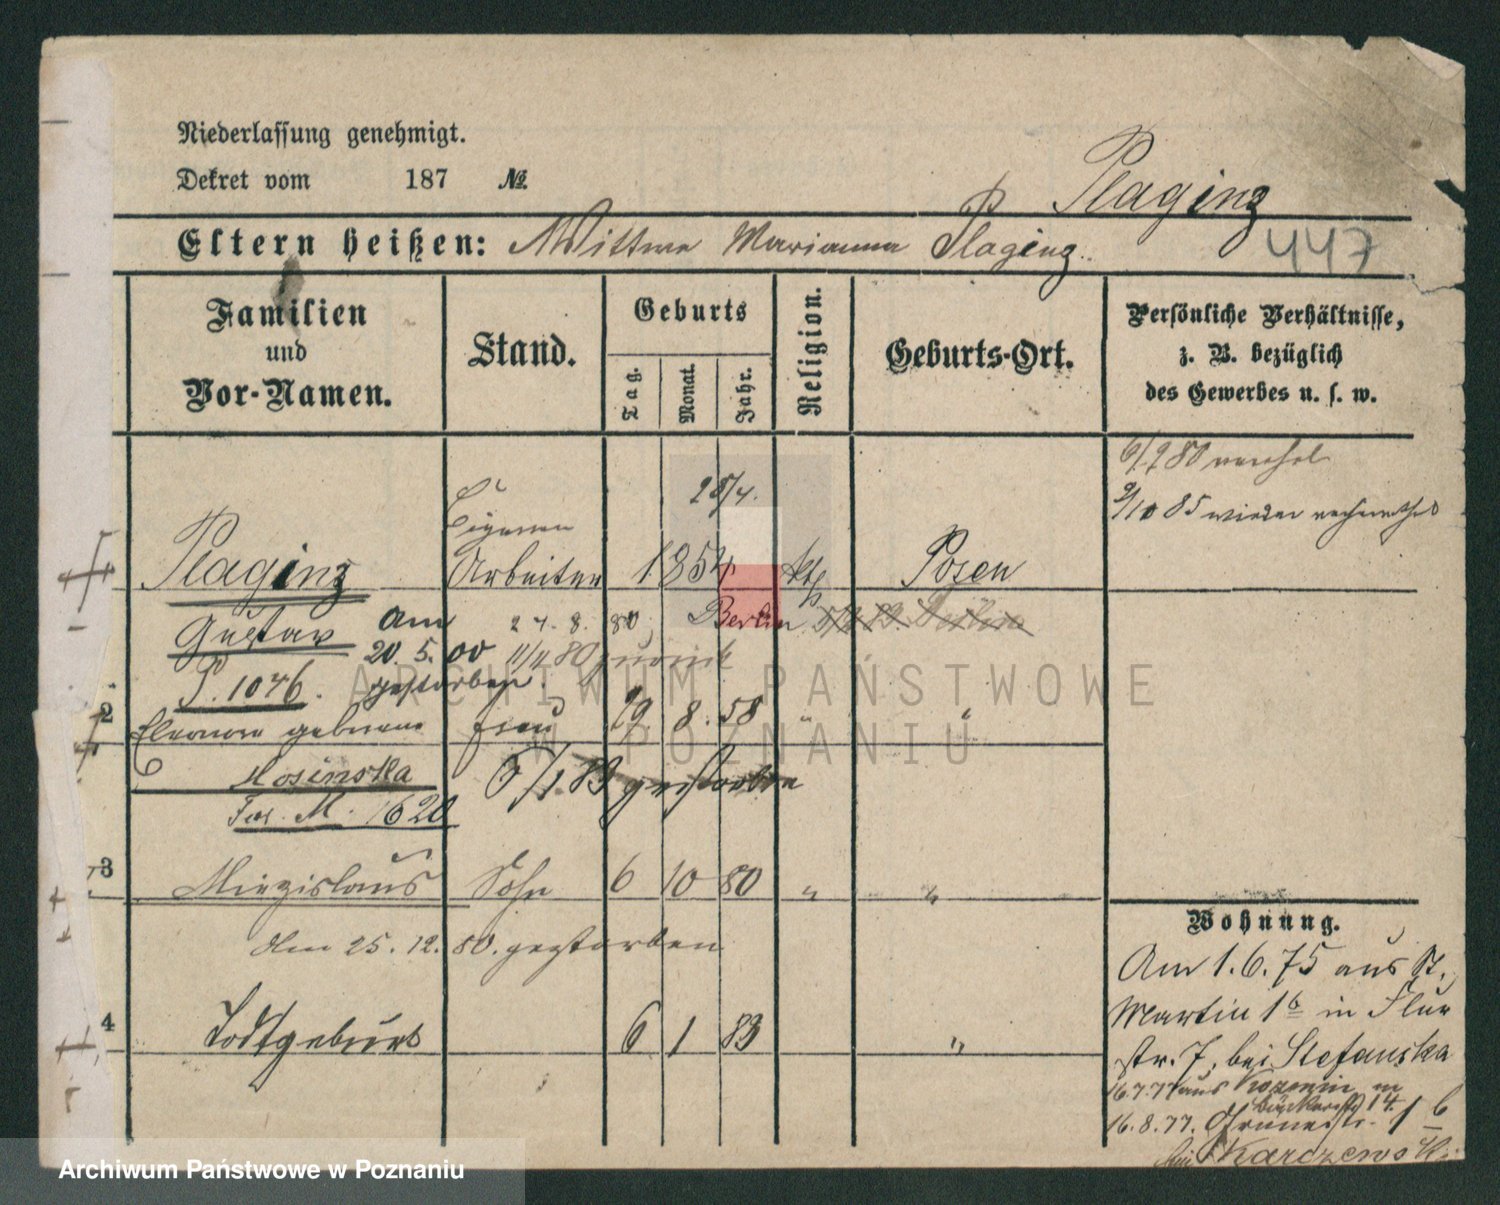 Niederlassung genehmigt.
Dekret vom 187 №
Plaginz
Eltern heißen: Wittwe Marianna Plaginz.
447
Familien und Vor-Namen.
Stand.
Geburts
Tag.
Monat.
Jahr.
Religion.
Geburts-Ort.
Persönliche Verhältnisse, z. B. bezüglich des Gewerbes u. s. w.
6/9 80
9/10 85 wieder
28/4.
Plaginz
Arbeiter
1854
kth
Posen
Gustav
Am 24. 8. 80 Berlin
20. 5. 00 11/11 80 zurück
P. 1046. gestorben.
2
Eleonore geborene Frau 19 8. 58 " "
Mosinska
5/1. 83 gestorben
M. 1620
3
Miezislaus Sohn 6 10 80 " "
den 25. 12. 80. gestorben
4
Todtgeburt 6 1 83 "
Wohnung.
Am 1. 6. 75 aus St.
Martin 16 in Flur
str. 7, bei Stefanska
16.7.77 aus in
Bäckerstr 14.
16. 8. 77. 16
bei Karczewski
ARCHIWUM PAŃSTWOWE
W POZNANIU
Archiwum Państwowe w Poznaniu